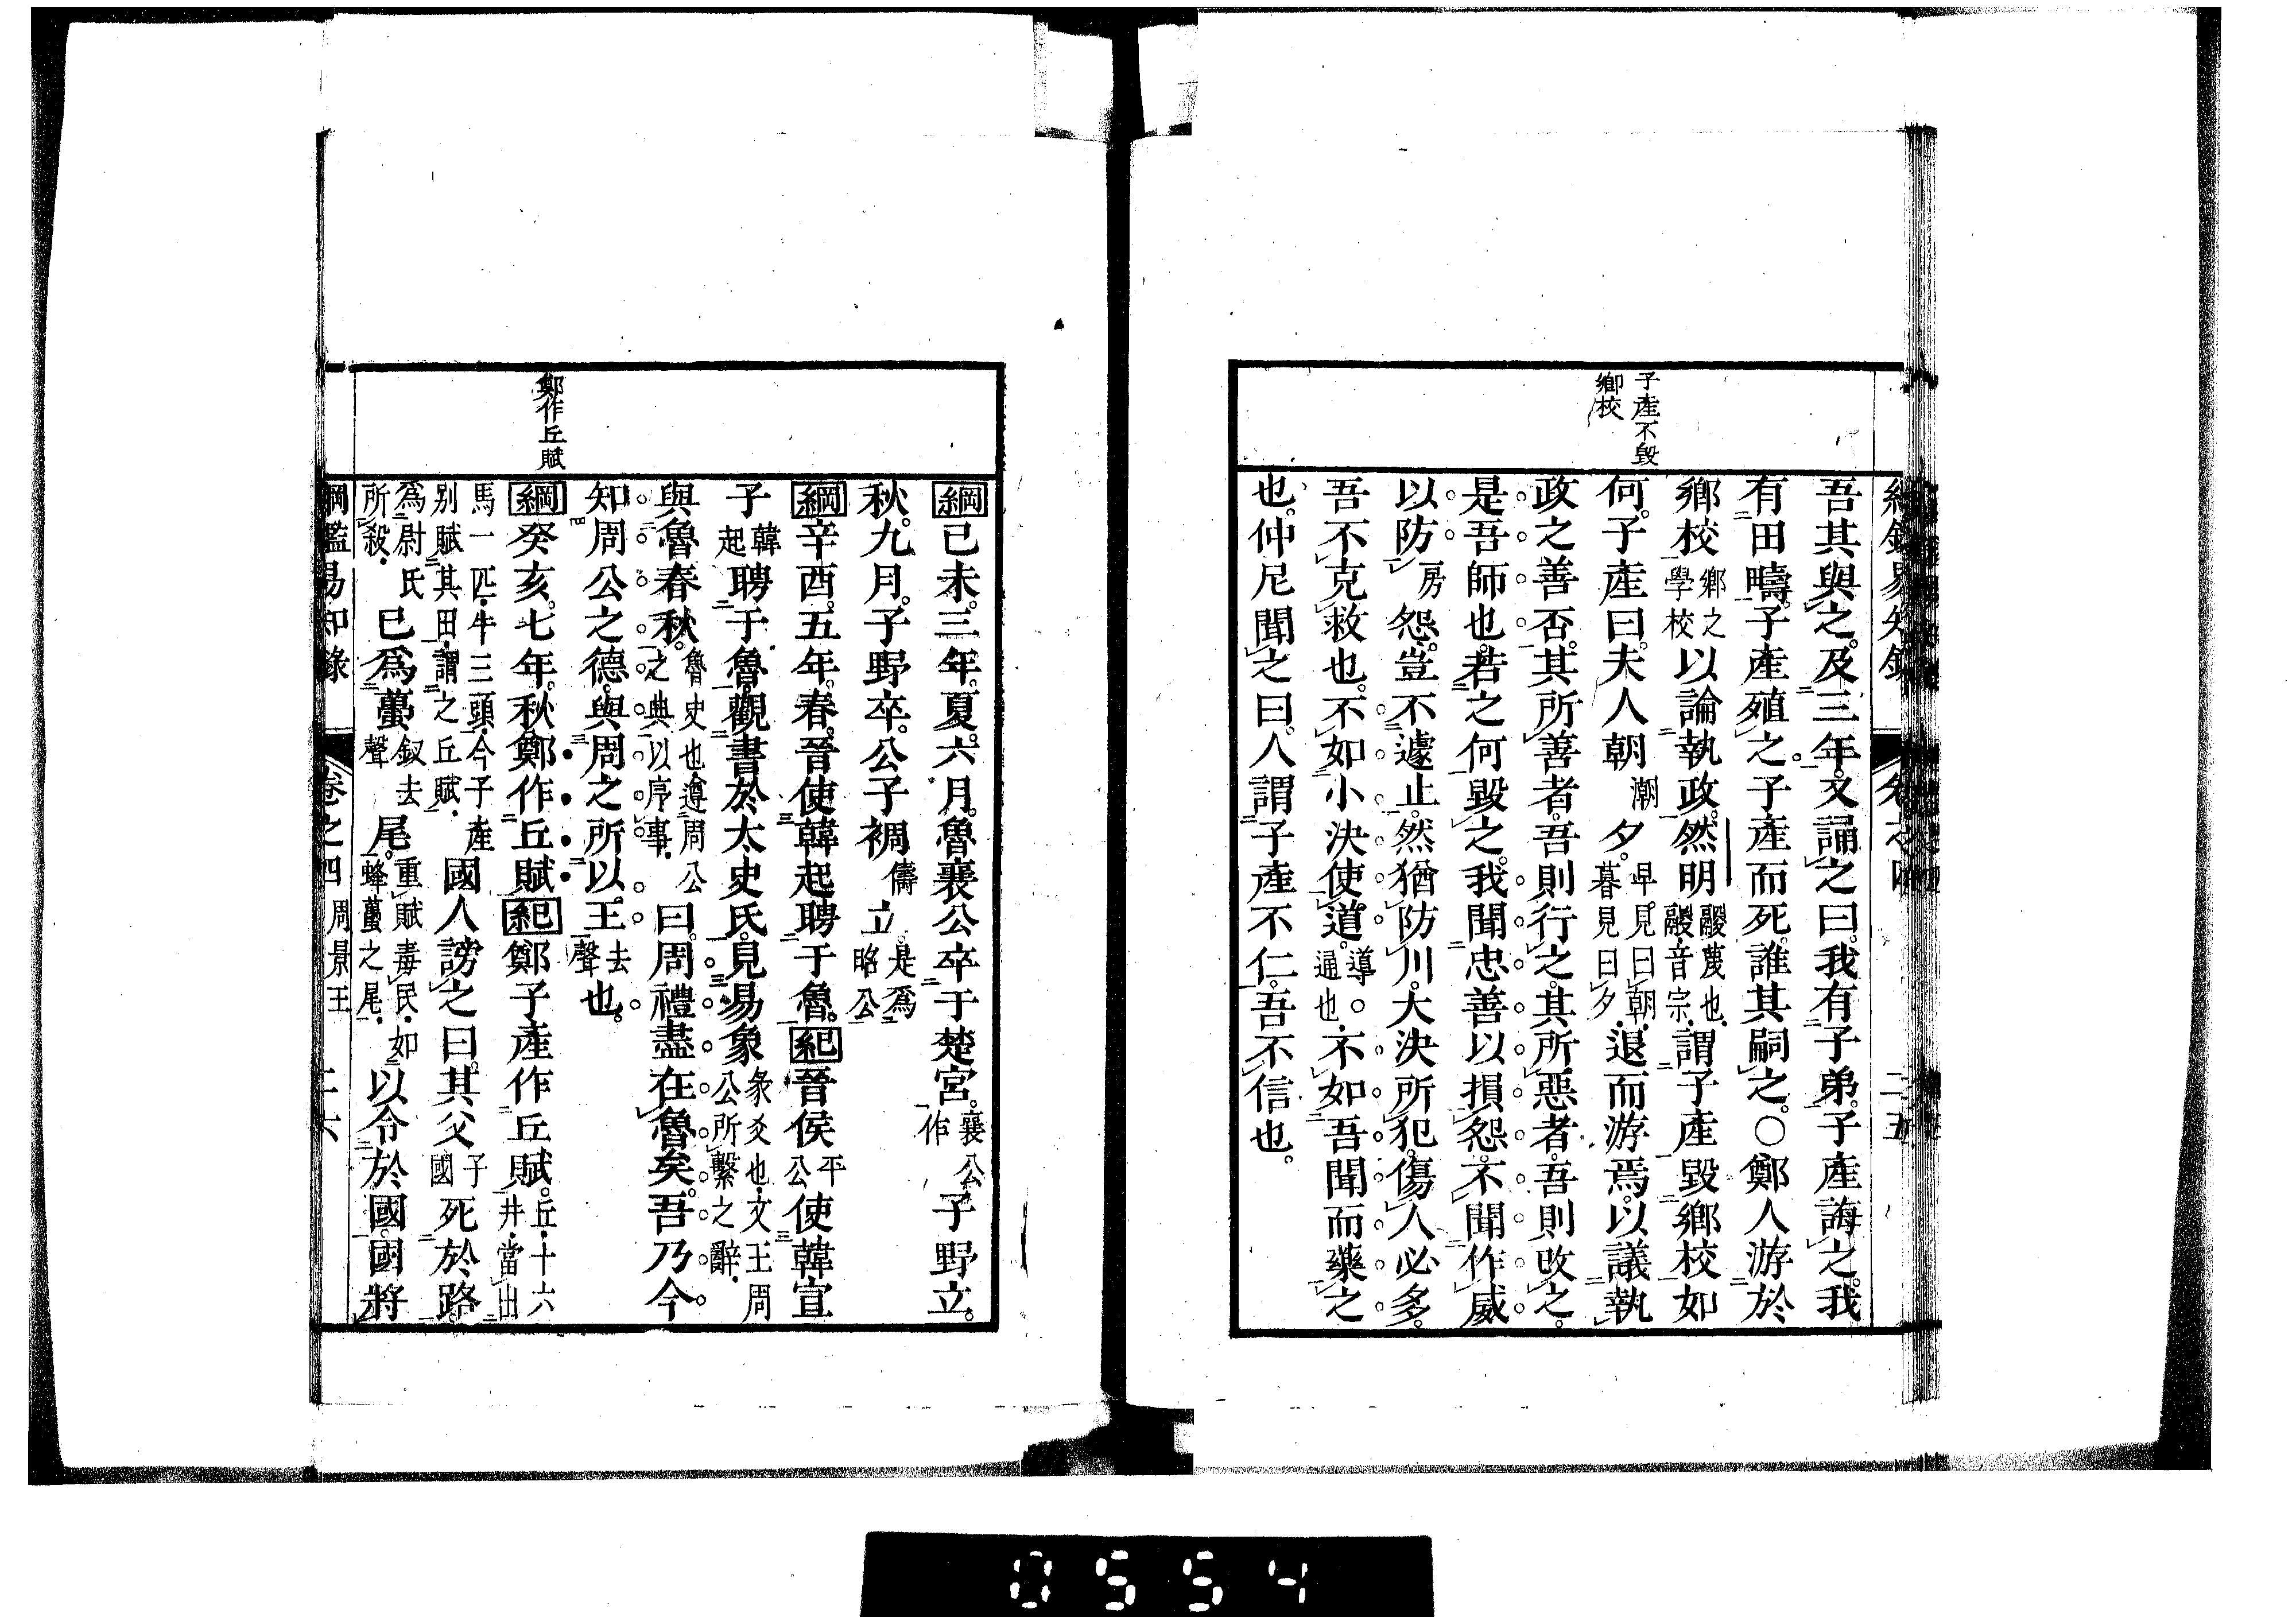 子產不毀
鄉校
吾其與之。及三年。又誦之曰。我有子弟。子產誨之。我
有田疇。子產殖之。子產而死。誰其嗣之。○鄭人游於
鄉校鄉之學校以論執政。然明鬷蔑也。鬷音宗。謂子產毀鄉校如
何。子產曰。夫人朝潮夕。早見曰朝。暮見曰夕。退而游焉。以議執
政之善否。其所善者。吾則行之。其所惡者。吾則改之。
是吾師也。若之何毀之。我聞忠善以損怨。不聞作威
以防房怨。豈不遽止。然猶防川。大決所犯。傷人必多。
吾不克救也。不如小決使道。導。通也。不如吾聞而藥之
也。仲尼聞之曰。人謂子產不仁。吾不信也。
卷之四
二五
鄭作丘賦
綱己未。三年。夏。六月。魯襄公卒于楚宮。襄公作子野立。
秋。九月。子野卒。公子裯儔立。是爲昭公
綱辛酉。五年。春。晉使韓起聘于魯。紀晉侯平公使韓宣
子韓起聘于魯。觀書於太史氏。見易象彖爻也。文王周公所繫之辭。
與魯春秋。魯史也遵周公之典以序事。曰。周禮盡在魯矣。吾乃今
知周公之德。與周之所以王去聲也。
綱癸亥。七年。秋。鄭作丘賦紀鄭子產作丘賦。丘。十六井。當出
馬一匹。牛三頭。今子產別賦其田。謂之丘賦。國人謗之曰。其父子國死於路。
爲尉氏所殺。已爲蠆釵去聲尾。重賦毒民。如蜂蠆之尾。以令於國。國將
綱鑑易知錄
卷之四
周景王
二六
0554